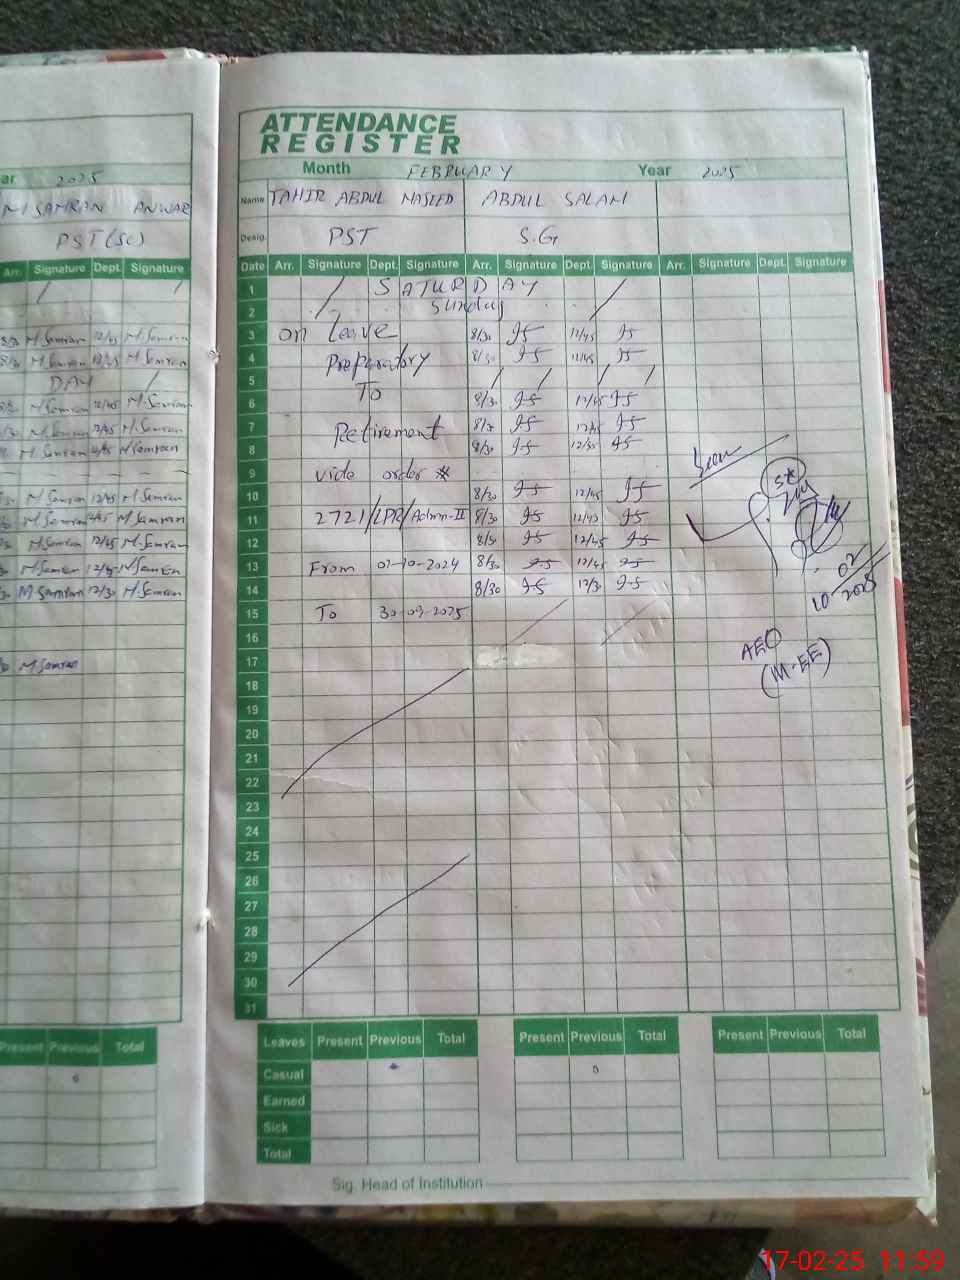 ATTENDANCE
REGISTER
Month FEBRUARY Year 2025
Name TAHIR ABDUL MAJEED ABDUL SALAM
Desig. PST S.G
Date Arr. Signature Dept. Signature Arr. Signature Dept. Signature Arr. Signature Dept. Signature
1 SATURDAY
2 Sunday
3 on leave 8/30 12/45
4 Preparatory 8/30 12/45
5 To
6 8/30 12/45
7 Retirement 8/30 12/45
8 8/30 12/45
9 vide order #
10 8/30 12/45
11 2721/LPR/Admn-II 8/30 12/45
12 8/30 12/45
13 From 01-10-2024 8/30 12/45
14 8/30 12/30
15 To 30-09-2025
16
17
18
19
20
21
22
23
24
25
26
27
28
29
30
31
Seen
10 02 2025
AEO
(M-EE)
Leaves Present Previous Total Present Previous Total Present Previous Total
Casual 0
Earned
Sick
Total
Sig. Head of Institution
ar 2025
SAMRAN ANWAR
PST (SC)
Arr. Signature Dept. Signature
8/30 M Samran 12/45 M Samran
8/30 M Samran 12/45 M Samran
DAY
M Samran 12/45 M Samran
M Samran 12/45 M Samran
M Samran 12/45 M Samran
M Samran 12/45 M Samran
M Samran 12/45 M Samran
M Samran 12/45 M Samran
M Samran 12/45 M Samran
M Samran 12/30 M Samran
M Samran
Present Previous Total
0
17-02-25 11:59